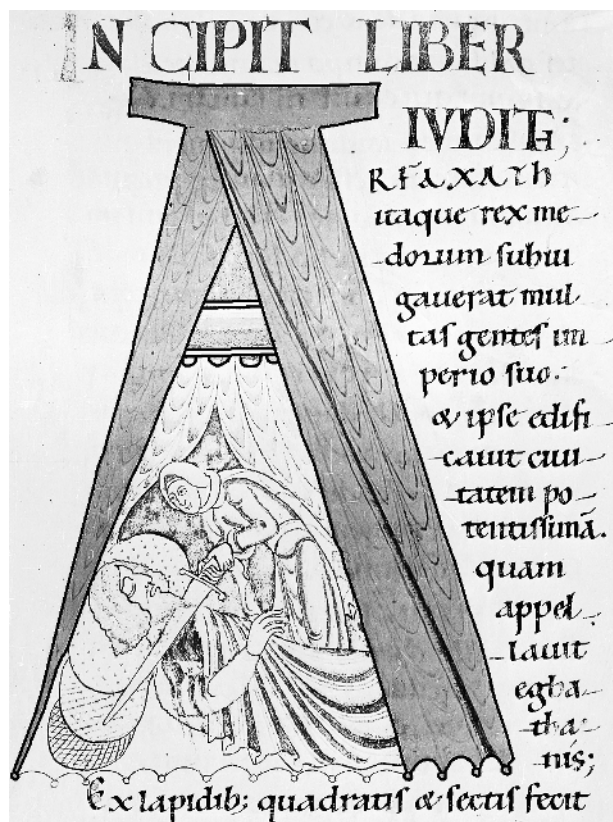 INCIPIT LIBER
IVDITH;
RFAXATH
itaque rex me
dorum subiu
gauerat mul
tas gentes im
perio suo.
& ipse edifi
cauit ciui
tatem po
tentissimā.
quam
appel
lauit
egba
tha
nis;
Ex lapidib; quadratis & sectis fecit